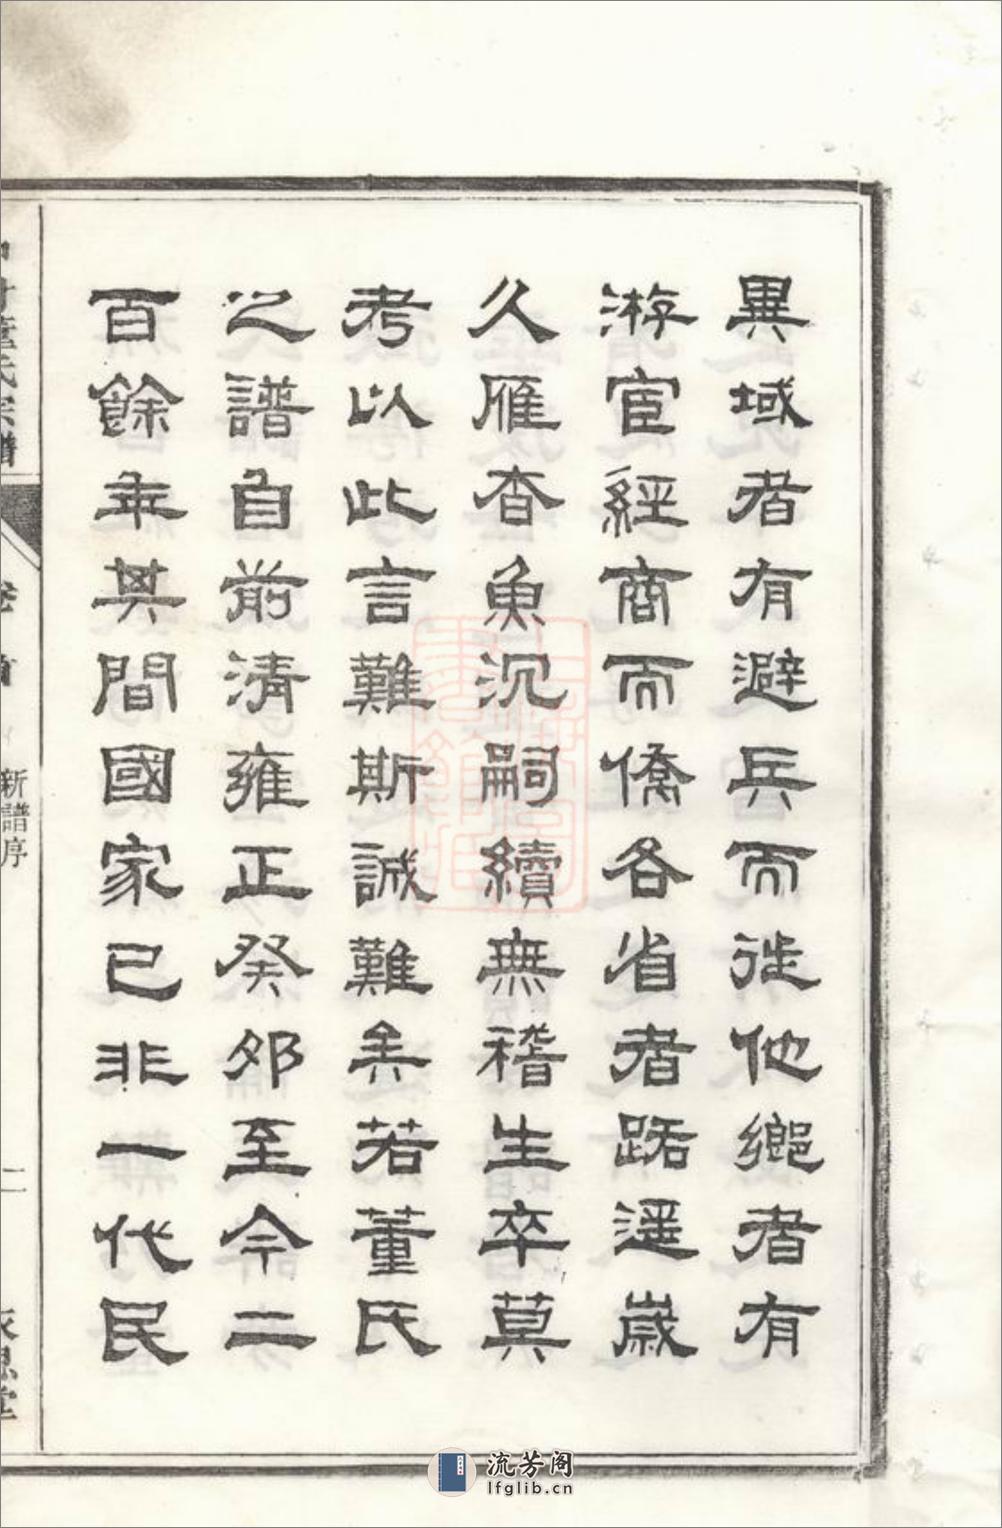 異域者有避兵而徙他鄉者有
游宦經商而僑各省者路遥歲
久雁杳魚沉嗣續無稽生卒莫
考以此言難斯誠難矣若董氏
之譜自前清雍正癸卯至今二
百餘年其間國家已非一代民
董氏宗譜
卷首
新譜序
二
流芳阁
lfglib.cn